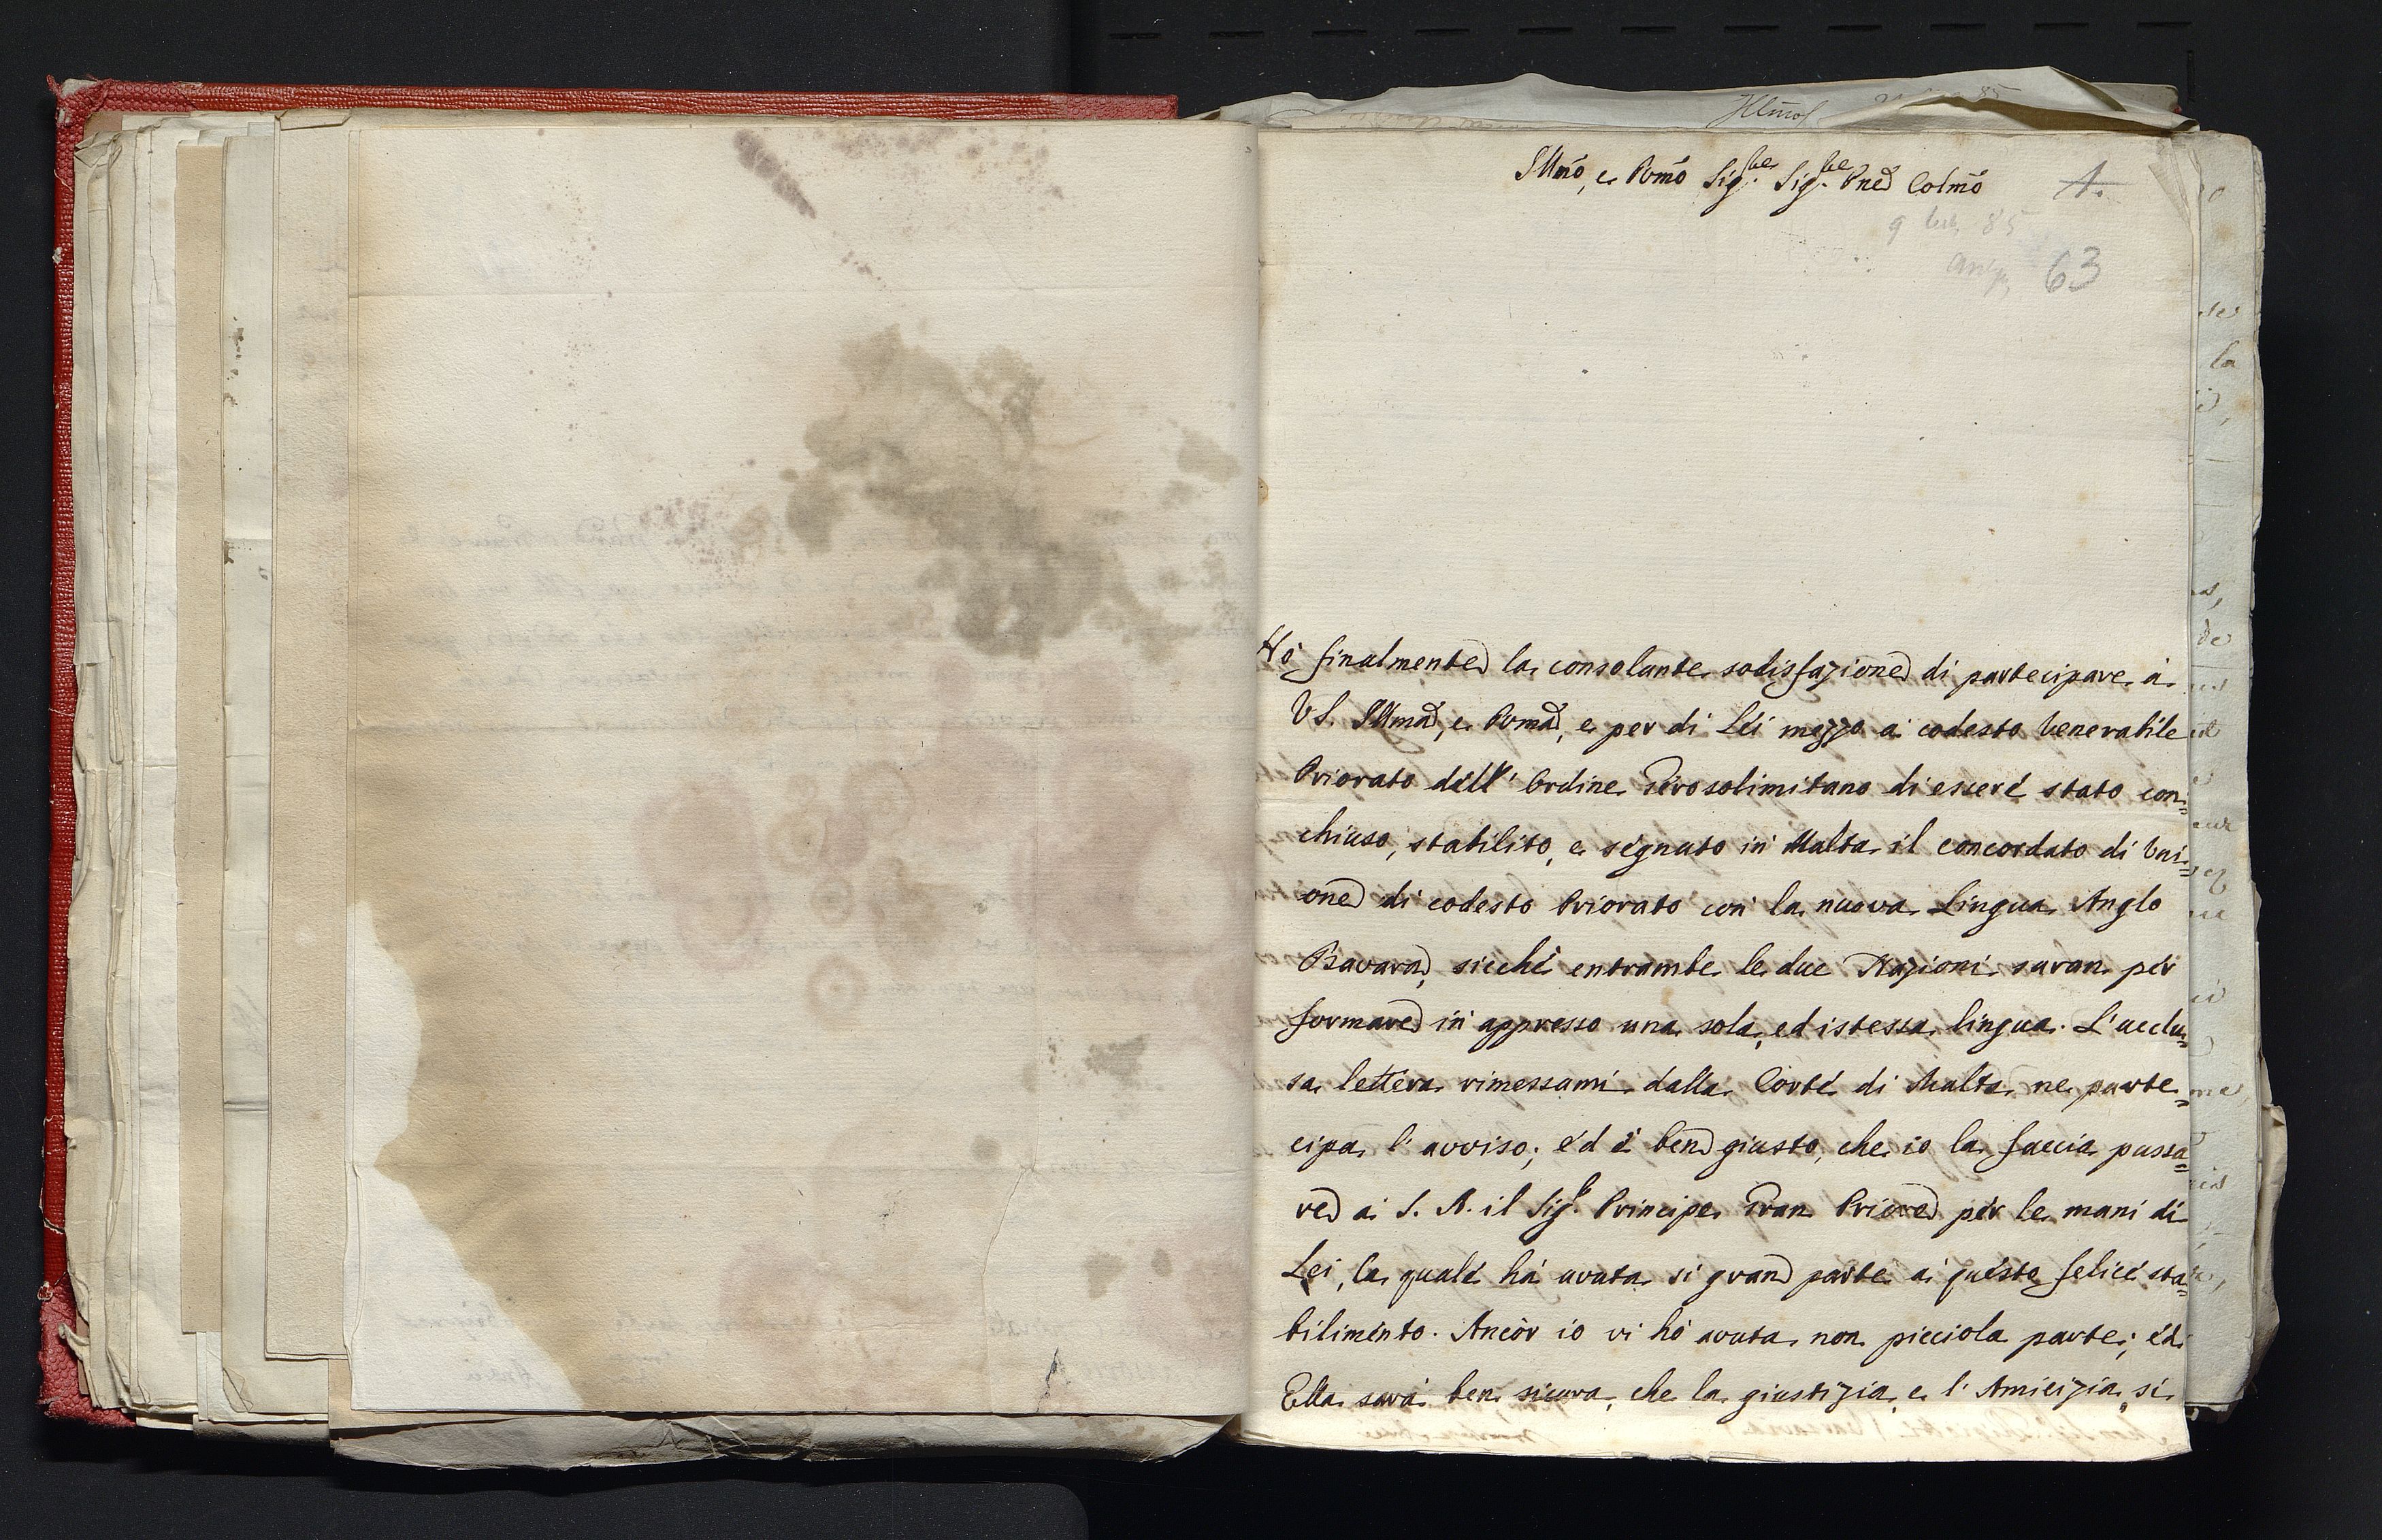 Illmo, e Rvmo Sig.re Sig.re Pne Colmo
1.
9 85
63
Hò finalmente la consolante sodisfazione di partecipare à
VS. Illma, e Rvma, e per di Lei mezzo à codesto Venerabile
Priorato dell' Ordine Gerosolimitano di essere stato con=
chiuso, stabilito, e segnato in Malta il concordato di Uni=
one di codesto Priorato con la nuova Lingua Anglo
Bavara, sicché entrambe le due Nazioni saran per
formare in appresso una sola, ed istessa lingua. L'acclu=
sa lettera rimessami dalla Corte di Malta ne parte=
cipa l'avviso; ed è ben giusto, che io la faccia passa=
re a S. A. il Sig.r Principe Gran Priore per le mani di
Lei, la quale hà avuta sì gran parte à questo felice sta=
bilimento. Ancor io vi hò avuta non picciola parte; ed
Ella sarà ben sicura, che la giustizia, e l'Amicizia si